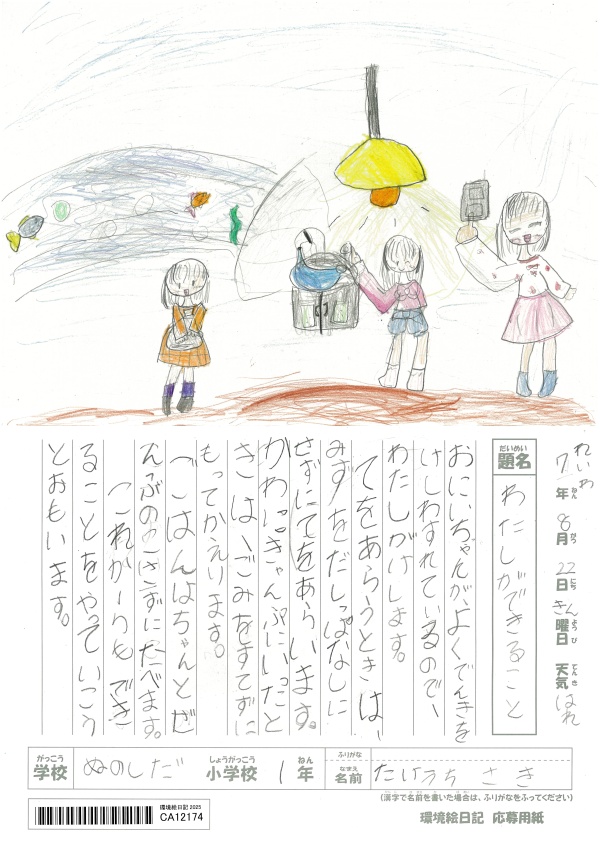 れいわ
7年 8月 22日 きん曜日 天気 はれ
ねん がつ にち ようび てんき
だいめい
題名 わたしができること
おにいちゃんが、よくでんきを
けしわすれているので、
わたしがけします。
てをあらうときは、
みずをだしっぱなしに
せずにてをあらいます。
かわにきゃんぷにいったと
きは、ごみをすてずに
もってかえります。
ごはんはちゃんとぜ
んぶのこさずにたべます。
これからもでき
ることをやっていこう
とおもいます。
がっこう しょうがっこう ねん ふりがな
学校 ぬのしだ 小学校 1年 名前 たけうち さき
なまえ
(漢字で名前を書いた場合は、ふりがなをふってください)
環境絵日記 応募用紙
環境絵日記 2025
CA12174